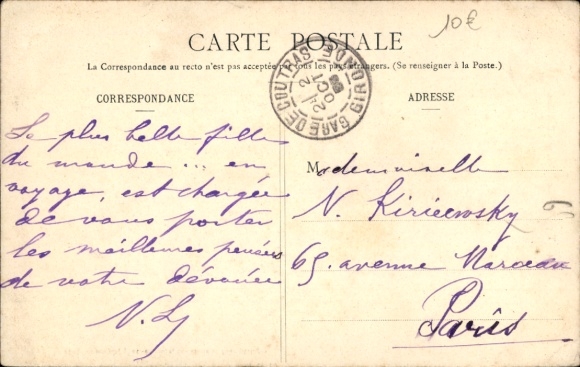 10€
CARTE POSTALE
La Correspondance au recto n'est pas acceptée par tous les pays étrangers. (Se renseigner à la Poste.)
CORRESPONDANCE
La plus belle fille
du monde ... en
voyage, est chargée
de vous porter
les meilleures pensées
de votre dévouée
N. L
ADRESSE
GARE DE COUTRAS GIRONDE
Mademoiselle
N. Kiriéewsky
65. avenue Marceau
Paris